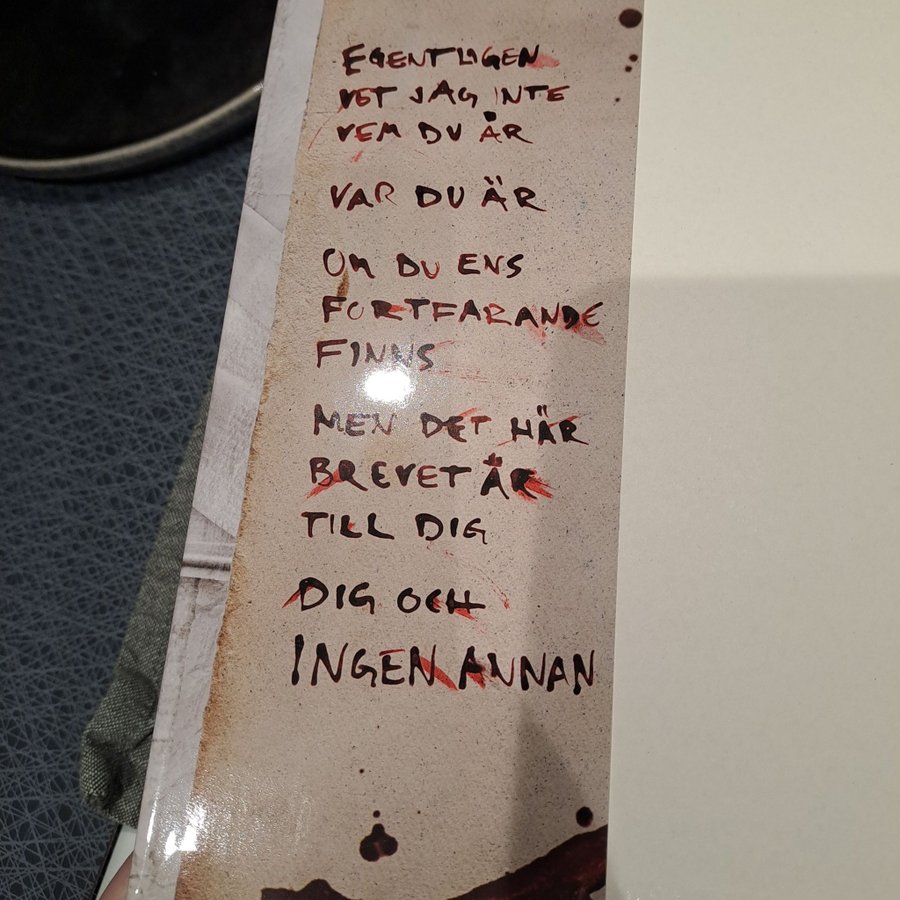 EGENTLIGEN
VET JAG INTE
VEM DU ÄR
VAR DU ÄR
OM DU ENS
FORTFARANDE
FINNS
MEN DET HÄR
BREVET ÄR
TILL DIG
DIG OCH
INGEN ANNAN